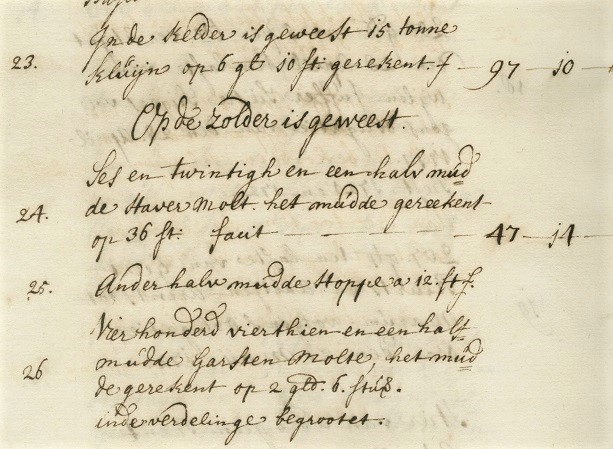 In de Kelder is geweest 15 tonne
23. Kluijn op 6 gl 10 st: gerekent. f — 97 — 10 —
Op de Zolder is geweest.
Ses en twintigh en een halv mud
24. de Haver Molt. het mudde gereekent
op 36 st: facit — — — — — 47 — 14 —
25. Ander halv mudde Hoppe a 12. st f.
Vier honderd vierthien en een halv
26 mudde Garsten Molte, het mud
de gerekent op 2 gld. 6. stux.
inde verdelinge begrootet.